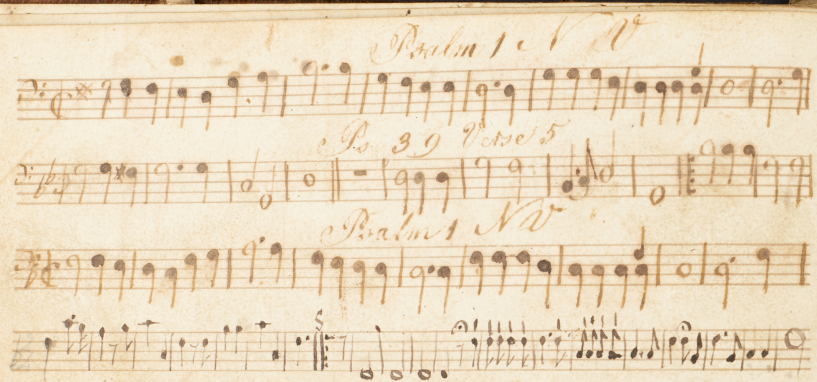 Psalm 1 N V
Ps 39 Verse 5
Psalm 1 N V
S